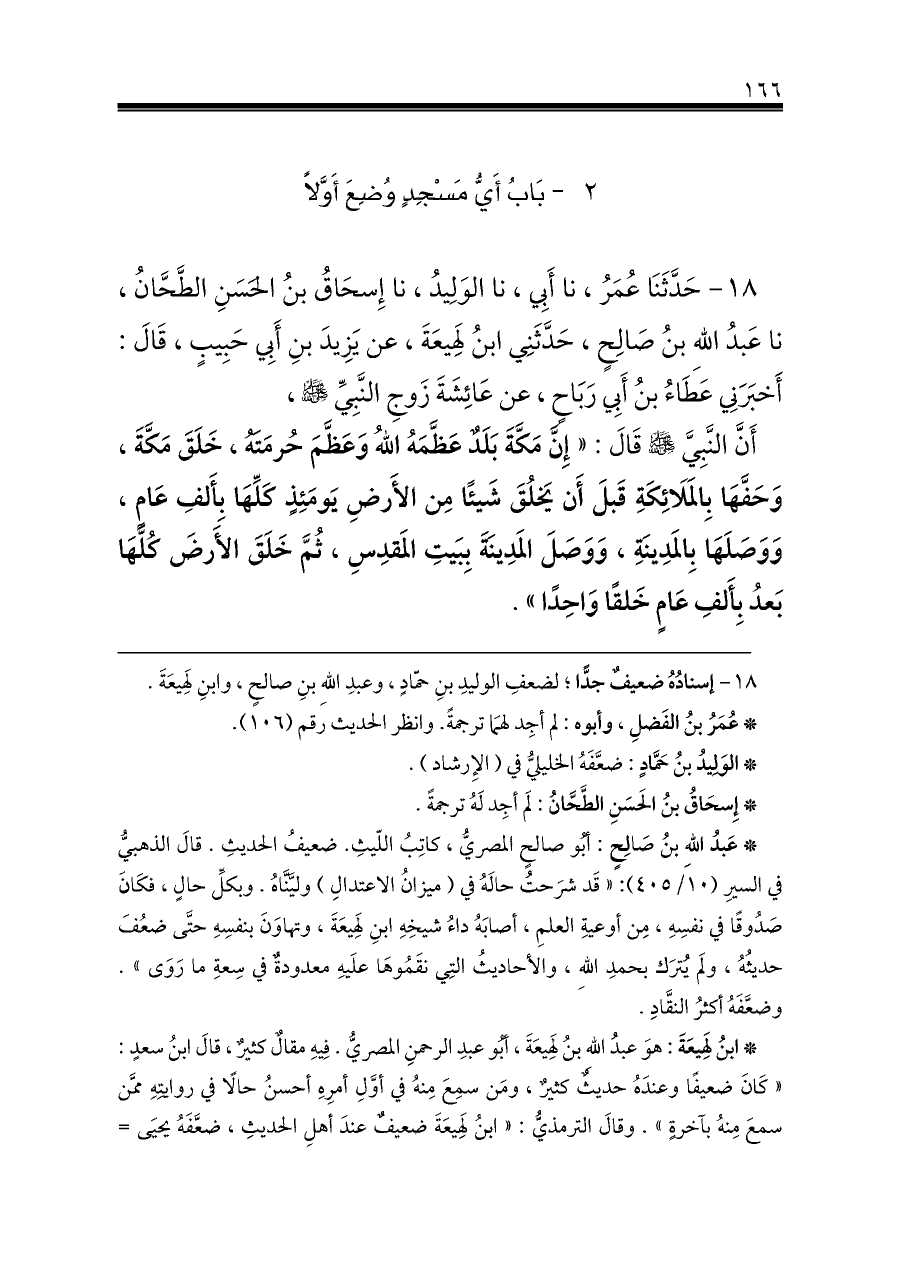 ١٦٦
٢ - بَابُ أَيُّ مَسْجِدٍ وُضِعَ أَوَّلاً
١٨- حَدَّثَنَا عُمَرُ ، نا أَبِي ، نا الوَلِيدُ ، نا إِسحَاقُ بنُ الحَسَنِ الطَّحَّانُ ،
نا عَبدُ اللهِ بنُ صَالِحٍ ، حَدَّثَنِي ابنُ لَهِيعَةَ ، عن يَزِيدَ بنِ أَبِي حَبِيبٍ ، قَالَ :
أَخبَرَنِي عَطَاءُ بنُ أَبِي رَبَاحٍ ، عن عَائِشَةَ زَوجِ النَّبِيِّ ﷺ ،
أَنَّ النَّبِيَّ ﷺ قَالَ : « إِنَّ مَكَّةَ بَلَدٌ عَظَّمَهُ اللهُ وَعَظَّمَ حُرمَتَهُ ، خَلَقَ مَكَّةَ ،
وَحَفَّهَا بِالمَلَائِكَةِ قَبلَ أَن يَخلُقَ شَيئًا مِن الأَرضِ يَومَئِذٍ كَلِّهَا بِأَلفِ عَامٍ ،
وَوَصَلَهَا بِالمَدِينَةِ ، وَوَصَلَ المَدِينَةَ بِبَيتِ المَقدِسِ ، ثُمَّ خَلَقَ الأَرضَ كُلَّهَا
بَعدُ بِأَلفِ عَامٍ خَلقًا وَاحِدًا » .
١٨- إسنادُهُ ضعيفٌ جدًّا ؛ لضعفِ الوليدِ بنِ حمّادٍ ، وعبدِ اللهِ بنِ صالحٍ ، وابنِ لَهِيعَةَ .
* عُمَرُ بنُ الفَضلِ ، وأبوه : لم أجِد لهمَا ترجمةً. وانظر الحديث رقم (١٠٦).
* الوَلِيدُ بنُ حَمَّادٍ : ضعَّفَهُ الخليليُّ في ( الإرشاد ) .
* إِسحَاقُ بنُ الحَسَنِ الطَّحَّانُ : لَم أجِد لَهُ ترجمةً .
* عَبدُ اللهِ بنُ صَالِحٍ : أبُو صالحٍ المصريُّ ، كاتِبُ اللّيثِ. ضعيفُ الحديثِ . قالَ الذهبيُّ
في السيرِ (١٠/ ٤٠٥): « قَد شرَحتُ حالَهُ في ( ميزانُ الاعتدالِ ) وليَّنَّاهُ . وبكلِّ حالٍ ، فكَانَ
صَدُوقًا في نفسِهِ ، مِن أوعيةِ العلمِ ، أصابَهُ داءُ شيخِهِ ابنِ لَهِيعَةَ ، وتهاوَنَ بنفسِهِ حتَّى ضعُفَ
حديثُهُ ، ولَم يُترَك بحمدِ اللهِ ، والأحاديثُ التِي نقَمُوهَا علَيهِ معدودةٌ في سِعةِ ما رَوَى » .
وضعَّفَهُ أكثرُ النقَّادِ .
* ابنُ لَهِيعَةَ : هوَ عبدُ اللهِ بنُ لَهِيعَةَ ، أبُو عبدِ الرحمنِ المصريُّ . فِيهِ مقالٌ كثيرٌ ، قالَ ابنُ سعدٍ :
« كَانَ ضعيفًا وعندَهُ حديثٌ كثيرٌ ، ومَن سمِعَ مِنهُ في أوَّلِ أمرِهِ أحسنُ حالًا في روايتِهِ ممَّن
سمعَ مِنهُ بآخرةٍ » . وقالَ الترمذيُّ : « ابنُ لَهِيعَةَ ضعيفٌ عندَ أهلِ الحديثِ ، ضعَّفَهُ يحيَى =